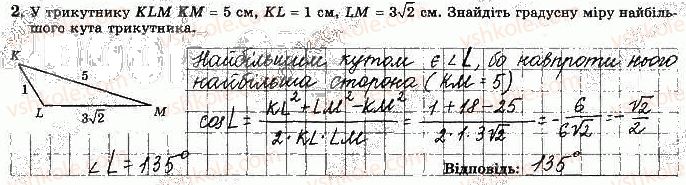 2. У трикутнику KLM KM = 5 см, KL = 1 см, LM = 3√2 см. Знайдіть градусну міру найбіль-
шого кута трикутника.
Найбільшим кутом є ∠L, бо навпроти нього
найбільша сторона (KM = 5)
K
5
1
L
3√2
M
cos L = (KL² + LM² - KM²)/(2·KL·LM) = (1 + 18 - 25)/(2·1·3√2) = -6/(6√2) = -√2/2
∠L = 135°
Відповідь: 135°